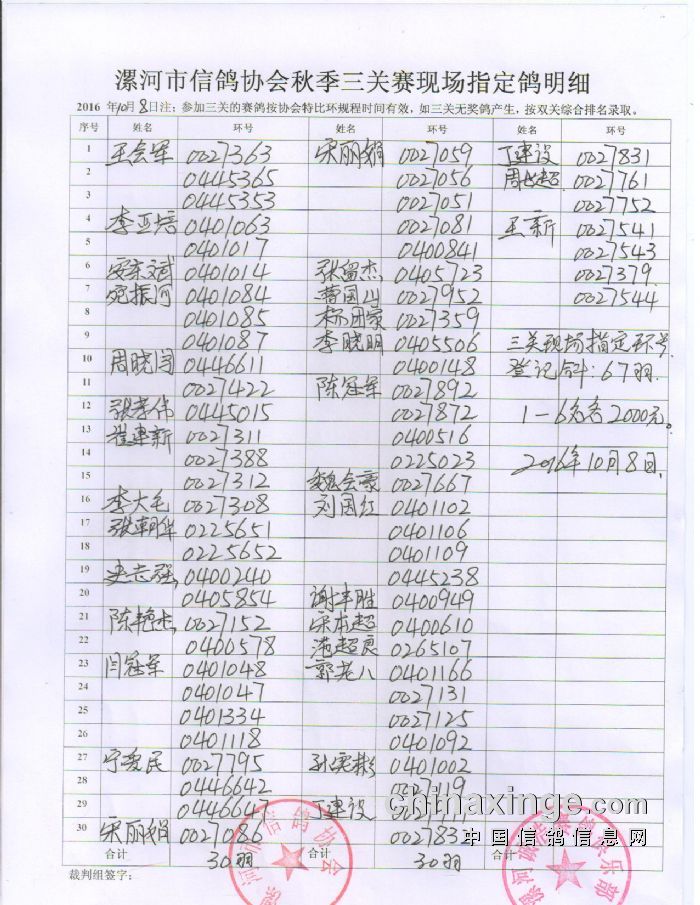 漯河市信鸽协会秋季三关赛现场指定鸽明细
2016 年10月8日注：参加三关的赛鸽按协会特比环规程时间有效，如三关无奖鸽产生，按双关综合排名录取。
序号 姓名 环号 姓名 环号 姓名 环号
1 王会军 0027363 宋丽娟 0027059 丁建设 0027831
2 0445365 0027056 周长超 0027761
3 0445353 0027051 0027752
4 李亚培 0401063 0027081 王新 0027541
5 0401017 0400841 0027543
6 安东斌 0401014 张留杰 0405723 0027379
7 宛振河 0401084 曹国山 0027952 0027544
8 0401085 0027359
9 0401087 李晓明 0405506 三关现场指定环号
10 周晓闯 0446611 0400148 登记合计：67羽.
11 0027422 陈冠军 0027892
12 张孝伟 0445015 0027872 1－6名各2000元。
13 崔建新 0027311 0400516
14 0027388 0225023 2016年10月8日.
15 0027312 魏会豪 0027667
16 李大毛 0027308 刘国红 0401102
17 张朝华 0225651 0401106
18 0225652 0401109
19 史志强 0400240 0445238
20 0405854 谢丰胜 0400949
21 陈艳杰 0027152 宋本超 0400610
22 0400578 港超良 0265107
23 闫冠军 0401048 郭老八 0401166
24 0401047 0027131
25 0401334 0027125
26 0401118 0401092
27 宁秀民 0027795 孙宪彬 0401002
28 0446642 0027119
29 0446647 丁建设
30 宋丽娟 0027086 002783
合计 30羽 合计 30羽
裁判组签字：
chinaxinge.com
中国信鸽信息网
漯河市信鸽协会